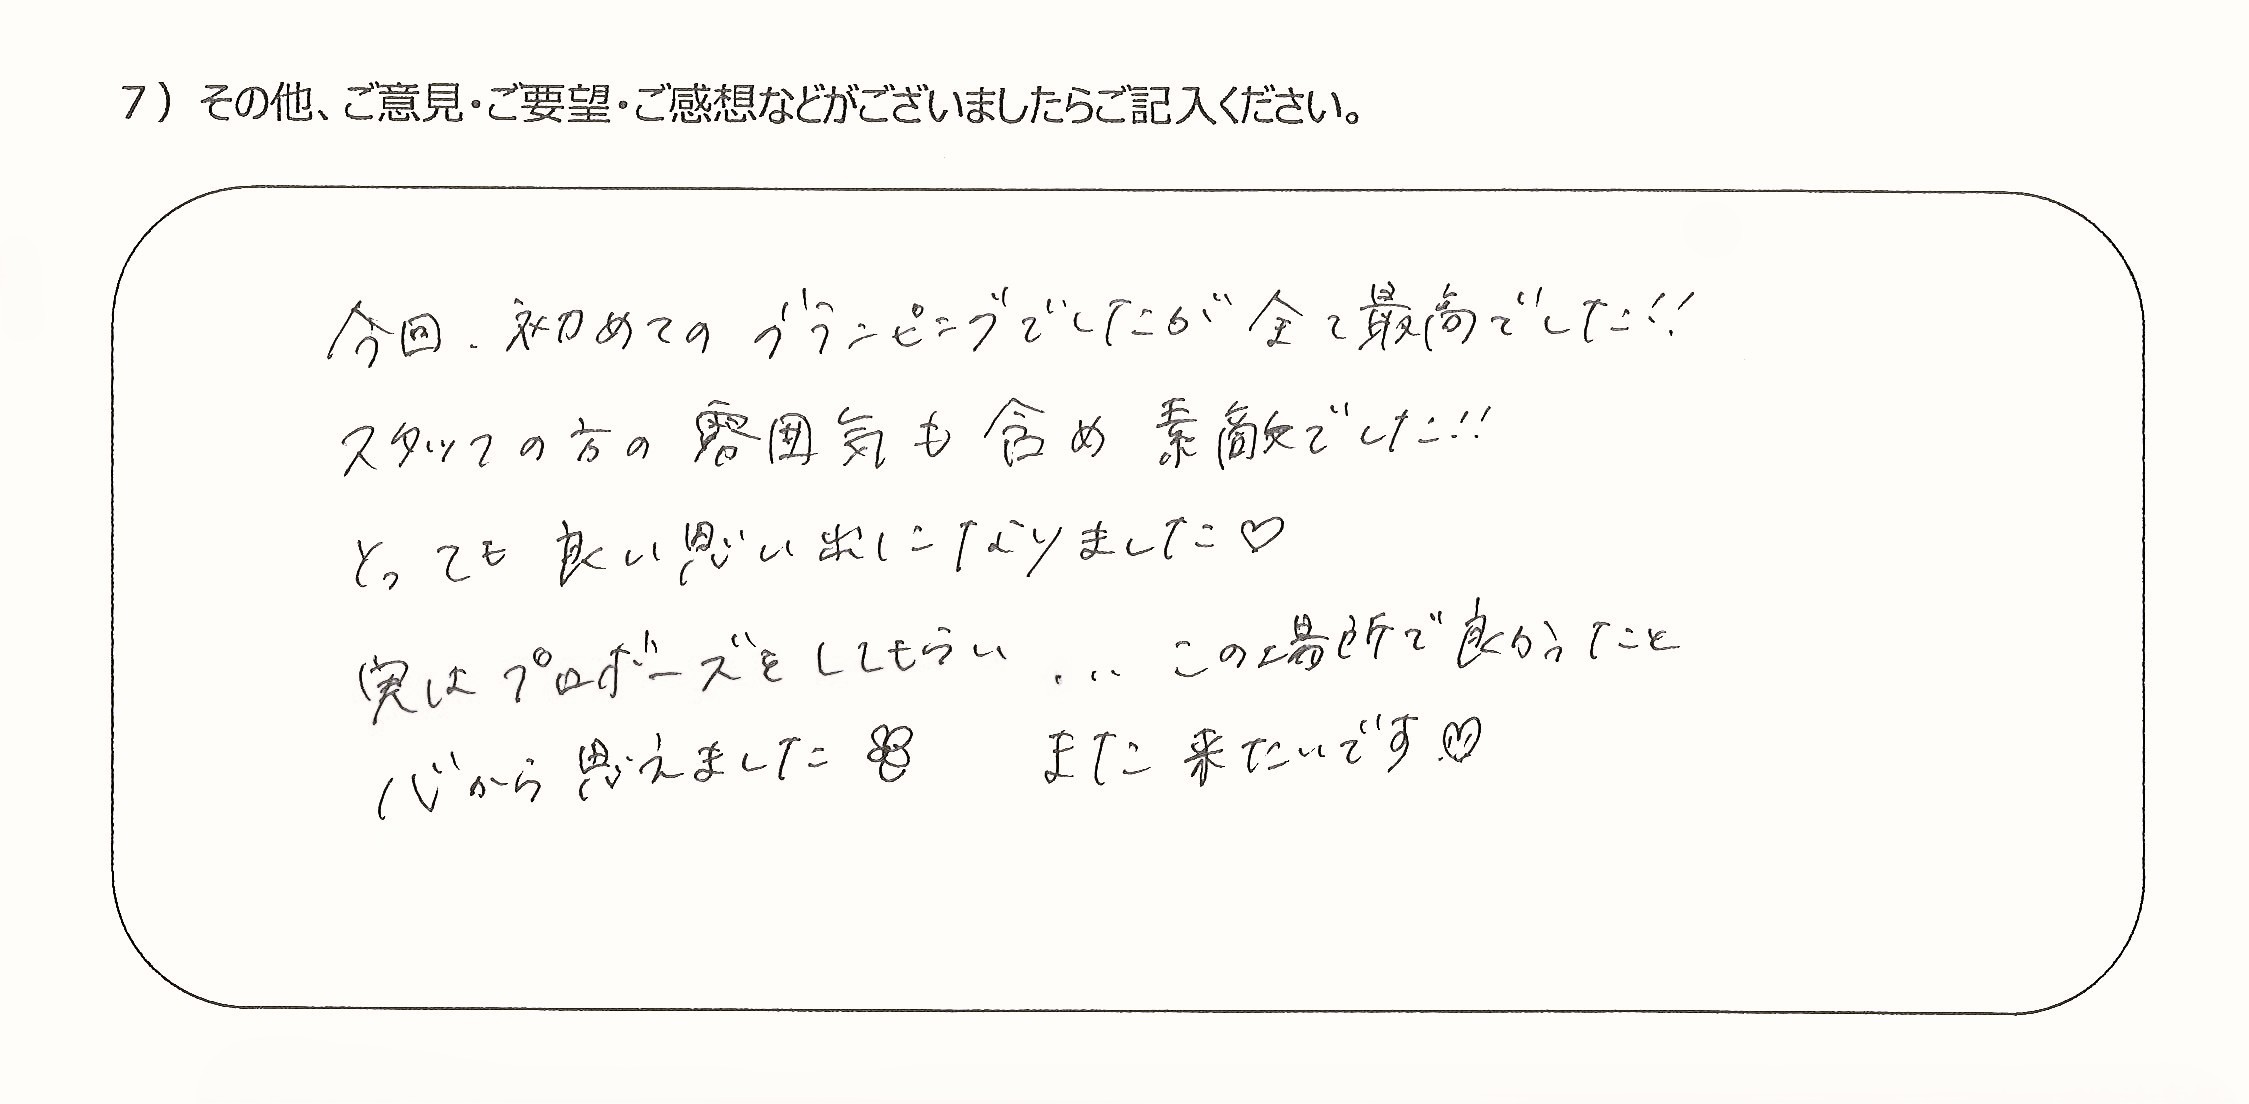 7）その他、ご意見・ご要望・ご感想などがございましたらご記入ください。
今回、初めてのグランピングでしたが 全て最高でした!!
スタッフの方の雰囲気も含め 素敵でした!!
とっても良い思い出になりました♡
実はプロポーズをしてもらい ... この場所で良かったこと
心から思えました また来たいです♡